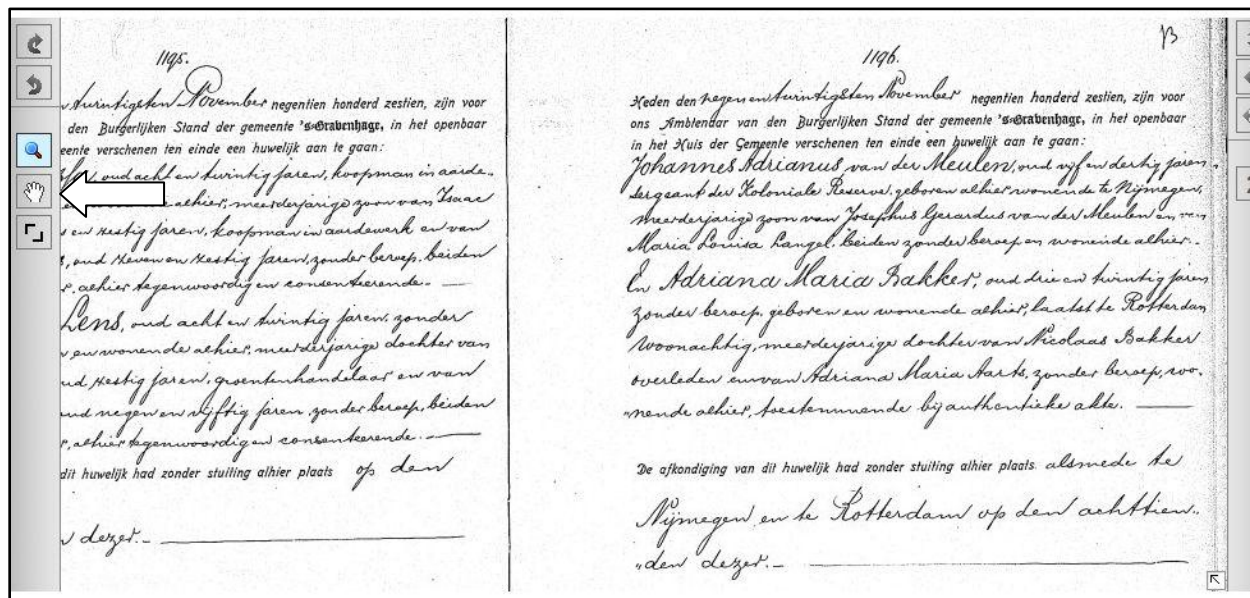 1195.
twintigsten November negentien honderd zestien, zijn voor
den Burgerlijken Stand der gemeente 's-Gravenhage, in het openbaar
eente verschenen ten einde een huwelijk aan te gaan:
oud acht en twintig jaren, koopman in aarde-
alhier, meerderjarige zoon van Isaac
en zestig jaren, koopman in aardewerk en van
, oud zeven en zestig jaren, zonder beroep, beiden
, alhier tegenwoordig en consenteerende.-
Lens, oud acht en twintig jaren, zonder
en wonende alhier, meerderjarige dochter van
ud zestig jaren, groentenhandelaar en van
oud negen en vijftig jaren, zonder beroep, beiden
, alhier tegenwoordig en consenteerende.-
dit huwelijk had zonder stuiting alhier plaats op den
dezer.-
13
1196.
Heden den negen en twintigsten November negentien honderd zestien, zijn voor
ons Ambtenaar van den Burgerlijken Stand der gemeente 's-Gravenhage, in het openbaar
in het Huis der Gemeente verschenen ten einde een huwelijk aan te gaan:
Johannes Adrianus van der Meulen, oud vijf en dertig jaren,
sergeant der Koloniale Reserve, geboren alhier wonende te Nijmegen,
meerderjarige zoon van Josephus Gerardus van der Meulen en van
Maria Louisa Langel, beiden zonder beroep en wonende alhier.-
En Adriana Maria Bakker, oud drie en twintig jaren
zonder beroep, geboren en wonende alhier, laatst te Rotterdam
woonachtig, meerderjarige dochter van Nicolaas Bakker
overleden en van Adriana Maria Aarts, zonder beroep, wo-
nende alhier, toestemmende bij authentieke akte.
De afkondiging van dit huwelijk had zonder stuiting alhier plaats alsmede te
Nijmegen en te Rotterdam op den achttien-
den dezer.-